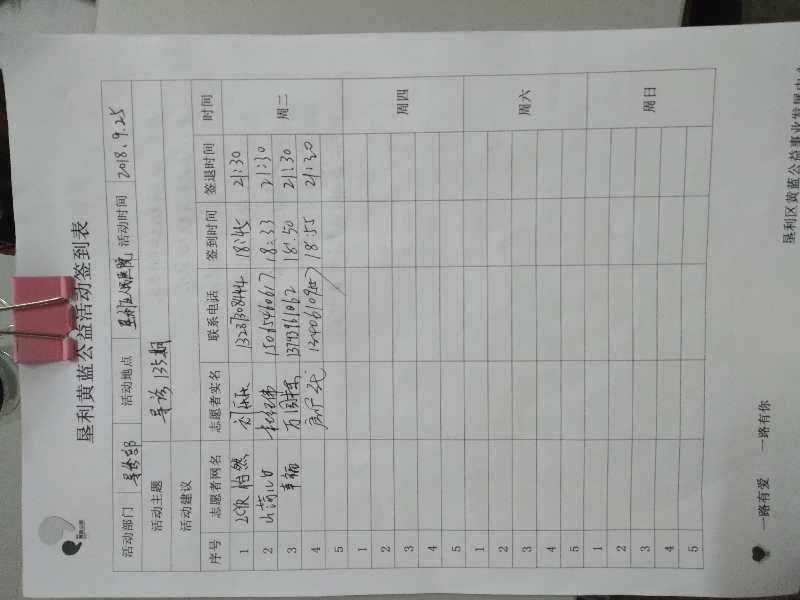 垦利黄蓝公益活动签到表
活动部门 导诊部 活动地点 垦利区人民医院 活动时间 2018.9.25
活动主题 导诊135期
活动建议
序号 志愿者网名 志愿者实名 联系电话 签到时间 签退时间 时间
1 怡然 13287308444 18:45 21:30 周二
2 山菏 15065460617 18:33 21:30
3 车辆 13793961062 18:50 21:30
4 18:55 21:30
5
1 周四
2
3
4
5
1 周六
2
3
4
5
1 周日
2
3
4
5
一路有爱 一路有你
垦利区黄蓝公益事业发展中心